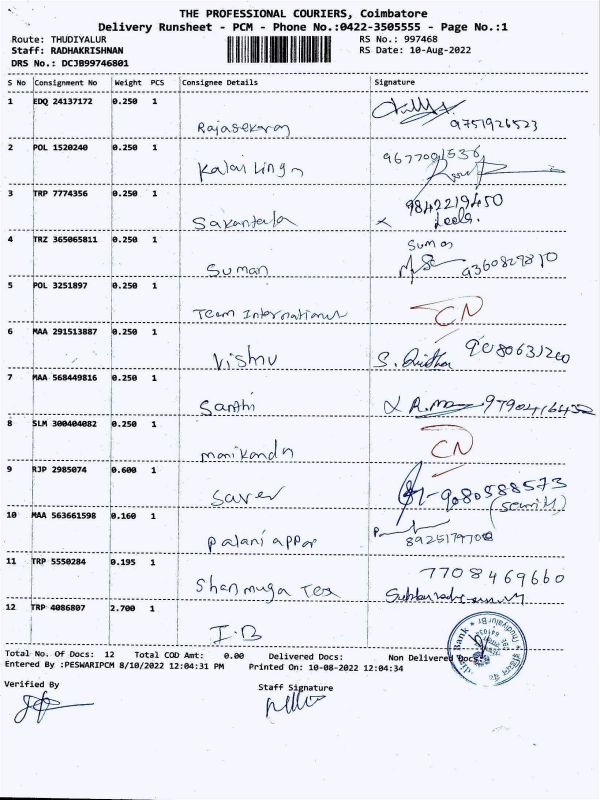 THE PROFESSIONAL COURIERS, Coimbatore
Delivery Runsheet - PCM - Phone No.:0422-3505555 - Page No.:1
Route: THUDIYALUR RS No.: 997468
Staff: RADHAKRISHNAN RS Date: 10-Aug-2022
DRS No.: DCJB99746801
S No Consignment No Weight PCS Consignee Details Signature
1 EDQ 24137172 0.250 1
Rajasekaran 9751926523
2 POL 1520240 0.250 1 9677091536
Kalai Linga
3 TRP 7774356 0.250 1 9842219450
Sakantala x Leela.
4 TRZ 365065811 0.250 1 Suman
Suman 9360829810
5 POL 3251897 0.250 1
Team International CN
6 MAA 291513887 0.250 1
Vishnu 9080631200
7 MAA 568449816 0.250 1
Santhi 9790416432
8 SLM 300404082 0.250 1
manikandn CN
9 RJP 2985074 0.600 1
Saver 9080588573
10 MAA 563661598 0.160 1
Palaniappan 8925179700
11 TRP 5550284 0.195 1 7708469660
Shanmuga Tex
12 TRP 4086807 2.700 1
I.B
Total No. Of Docs: 12 Total COD Amt: 0.00 Delivered Docs: Non Delivered Docs:
Entered By :PESWARIPCM 8/10/2022 12:04:31 PM Printed On: 10-08-2022 12:04:34
Verified By Staff Signature